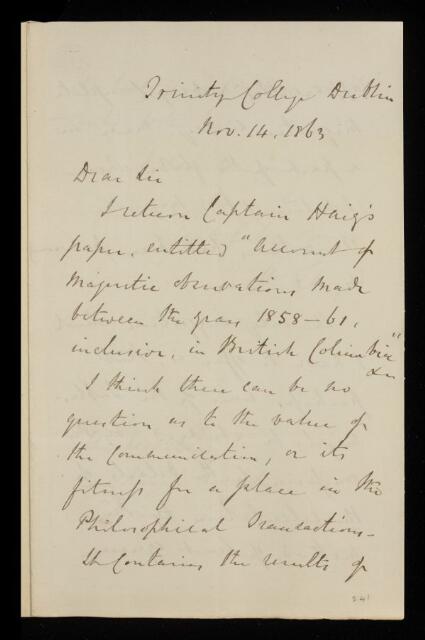 Trinity College Dublin
Nov. 14, 1863
Dear Sir
I return Captain Haig's
paper, entitled "Account of
Magnetic observations made
between the years 1858–61,
inclusive, in British Columbia"
&c
I think there can be no
question as to the value of
the Communication, or its
fitness for a place in the
Philosophical Transactions–
It contains the results of
241